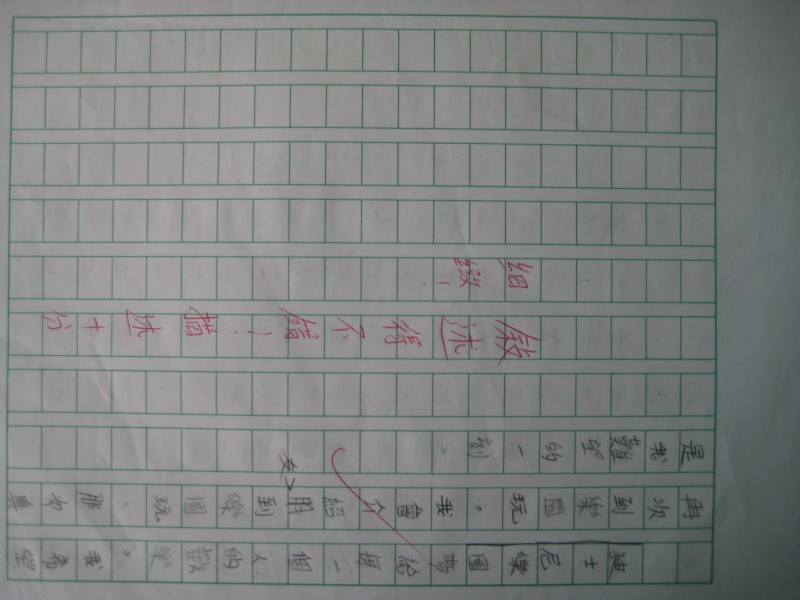 迪士尼樂園帶給每一個人的歡樂。我希望
再次到樂園玩。我會介紹朋友到樂園玩。那次真
是我難望的一刻。
敘述得不錯!描述十分
細緻!